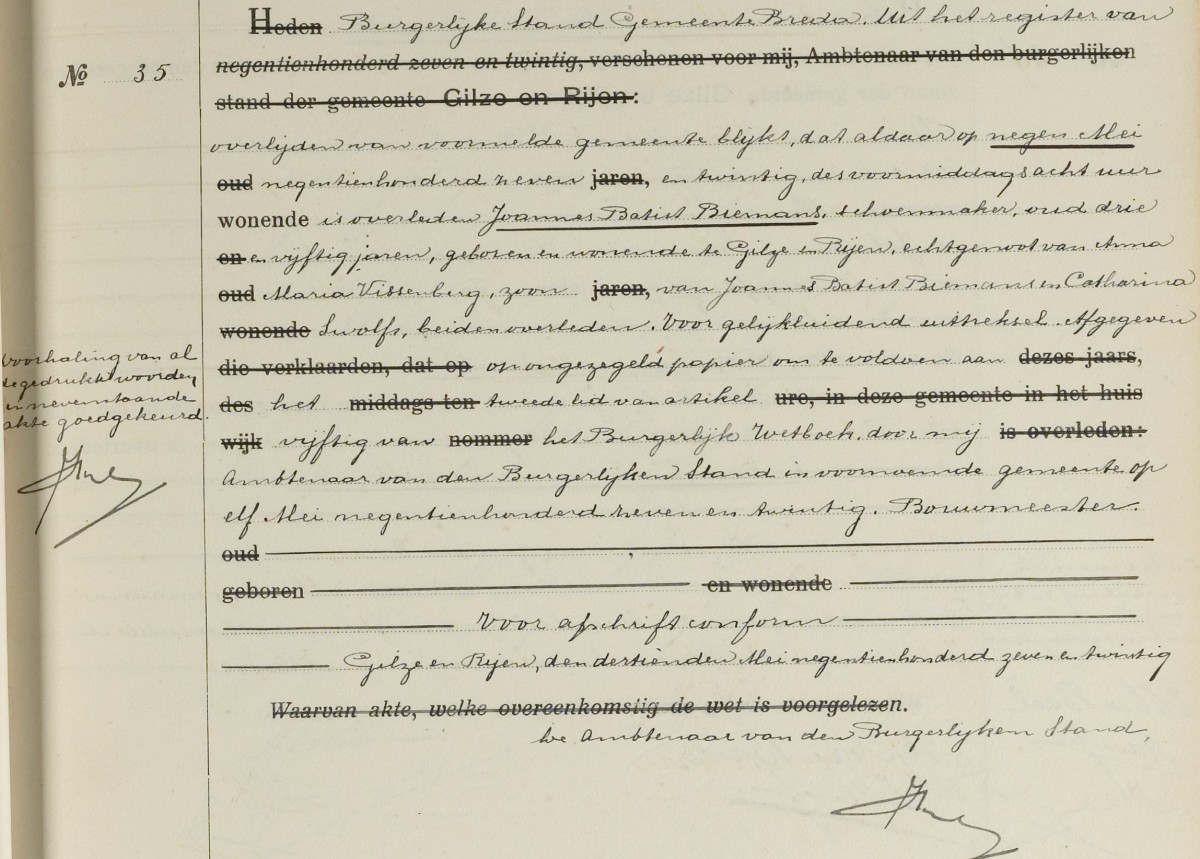 Heden Burgerlijke Stand Gemeente Breda. Uit het register van
negentienhonderd zeven en twintig, verschenen voor mij, Ambtenaar van den burgerlijken
No 35
stand der gemeente Gilze en Rijen:
overlijden van voormelde gemeente blijkt, dat aldaar op negen Mei
oud negentienhonderd zeven jaren, en twintig, des voormiddags acht uur
wonende is overleden Joannes Batist Biemans, schoenmaker, oud drie
en en vijftig jaren, geboren en wonende te Gilze en Rijen, echtgenoot van Anna
oud Maria Vissenberg, zoon jaren, van Joannes Batist Biemans en Catharina
wonende Swolfs, beiden overleden. Voor gelijkluidend uittreksel. Afgegeven
die verklaarden, dat op op ongezegeld papier om te voldoen aan dezes jaars,
des het middags ten tweede lid van artikel ure, in deze gemeente in het huis
wijk vijftig van nommer het Burgerlijk Wetboek, door mij is overleden:
Ambtenaar van den Burgerlijken Stand in voornoemde gemeente op
elf Mei negentienhonderd zeven en twintig. Bouwmeester.
oud
geboren en wonende
Voor afschrift conform
Gilze en Rijen, den dertienden Mei negentienhonderd zeven en twintig
Waarvan akte, welke overeenkomstig de wet is voorgelezen.
De Ambtenaar van den Burgerlijken Stand,
Doorhaling van al
de gedrukte woorden
in nevenstaande
akte goedgekeurd.